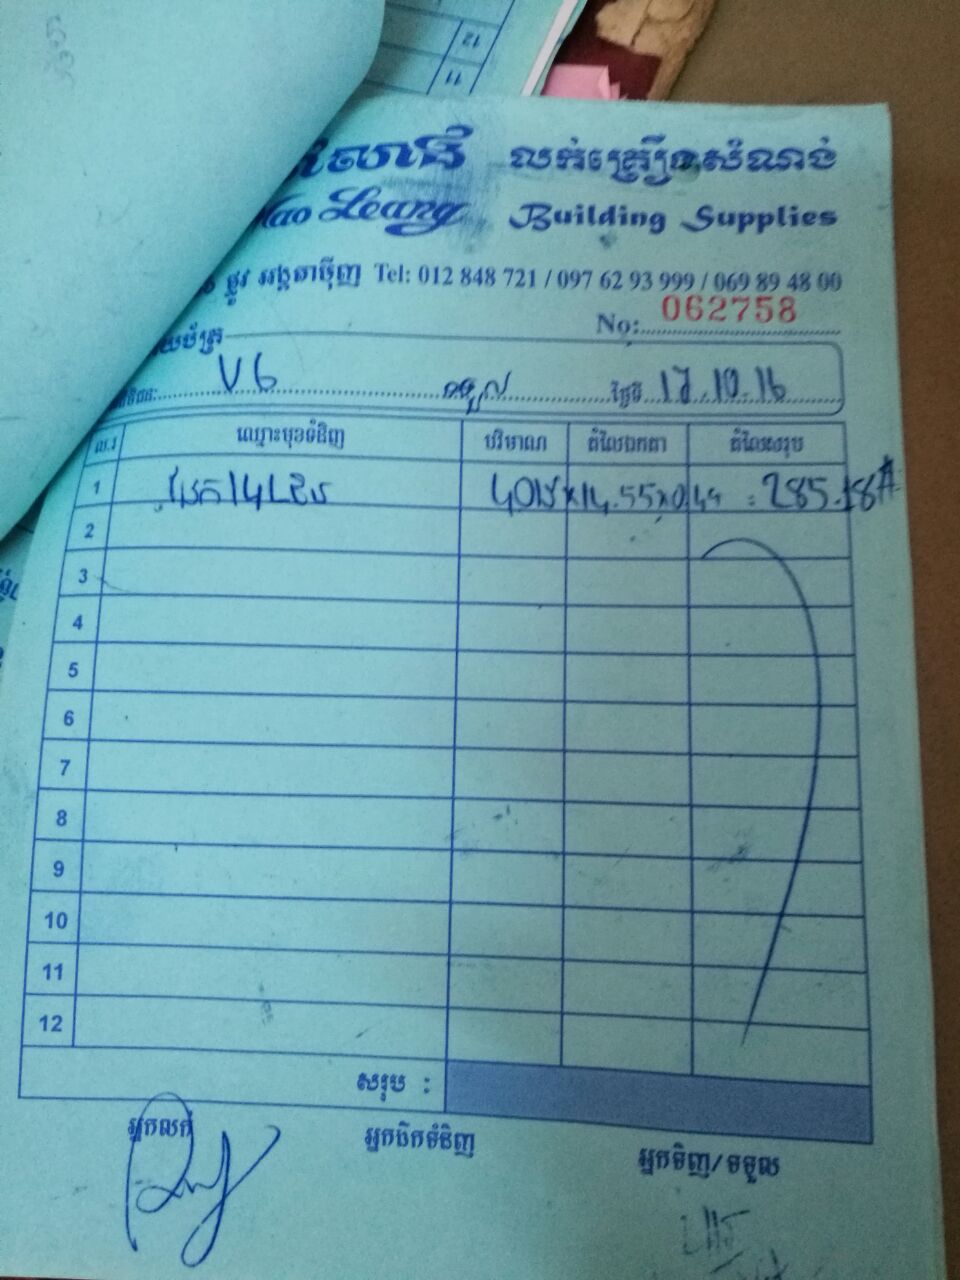 12
11
លក់គ្រឿងសំណង់
ao Leang Building Supplies
ផ្លូវ Tel: 012 848 721 / 097 62 93 999 / 069 89 48 00
No: 062758
V6 ទទួល ថ្ងៃទី 17.10.16
ល.រ ឈ្មោះមុខទំនិញ បរិមាណ តំលៃឯកតា តំលៃសរុប
1 14 40 x 14.55 x 0.49 = 285.18
2
3
4
5
6
7
8
9
10
11
12
សរុប :
អ្នកលក់ អ្នកដឹកទំនិញ អ្នកទិញ/ទទួល